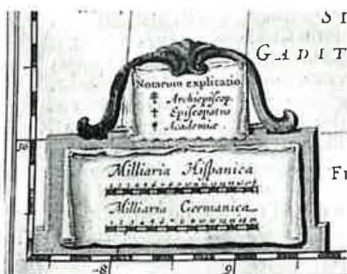 GADIT
Notarum explicatio.
Archiepiscop.
Episcopatus
Academiæ.
Milliaria Hispanica
Milliaria Germanica
36
8
9